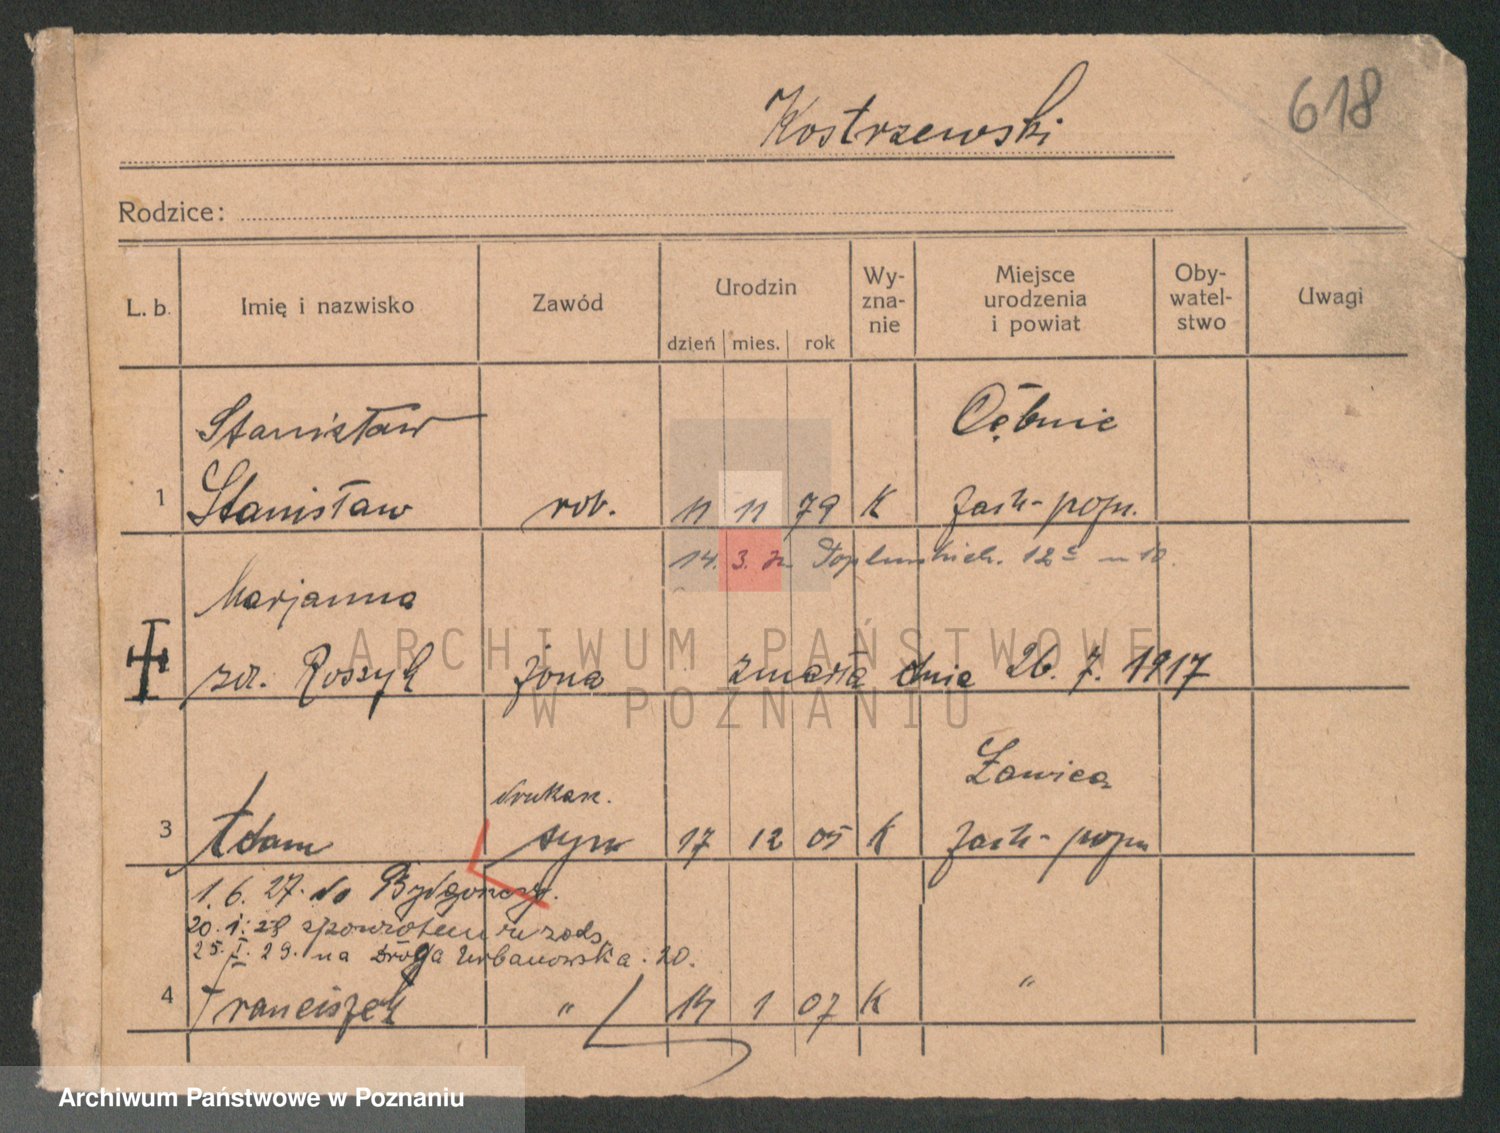 618
Kostrzewski
Rodzice:
L. b. Imię i nazwisko Zawód Urodzin dzień mies. rok Wy-zna-nie Miejsce urodzenia i powiat Oby-watel-stwo Uwagi
Stanisław
1 Stanisław rob. 11 11 79 K zach-pozn.
14. 3. 12 m 10.
Marjanna
zd. Roszyk żona zmarła dnia 26. 7. 1917
ARCHIWUM PAŃSTWOWE
W POZNANIU
Ławica
drukarz.
3 Adam syn 17 12 05 K zach-pozn
1. 6. 27. do Bydgoszczy.
20. 1. 28 spowrotem w zods.
25. I. 29. na Dróga Urbanowska. 20.
4 Franciszek " 14 1 07 K "
Archiwum Państwowe w Poznaniu